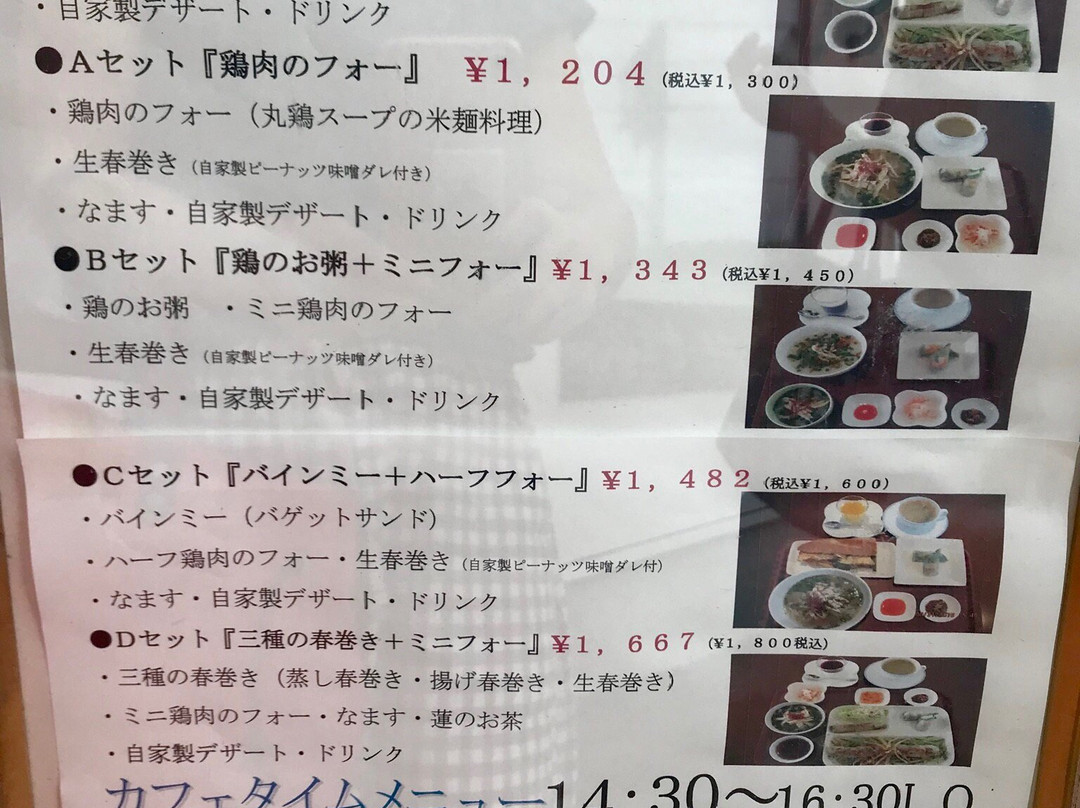 ・自家製デザート・ドリンク
●Ａセット『鶏肉のフォー』 ¥1, 204 (税込¥1, 300)
・鶏肉のフォー（丸鶏スープの米麺料理）
・生春巻き（自家製ピーナッツ味噌ダレ付き）
・なます・自家製デザート・ドリンク
●Ｂセット『鶏のお粥＋ミニフォー』 ¥1, 343 (税込¥1, 450)
・鶏のお粥 ・ミニ鶏肉のフォー
・生春巻き（自家製ピーナッツ味噌ダレ付き）
・なます・自家製デザート・ドリンク
●Ｃセット『バインミー＋ハーフフォー』 ¥1, 482 (税込¥1, 600)
・バインミー（バゲットサンド）
・ハーフ鶏肉のフォー・生春巻き（自家製ピーナッツ味噌ダレ付）
・なます・自家製デザート・ドリンク
●Ｄセット『三種の春巻き＋ミニフォー』 ¥1, 667 (¥1, 800税込)
・三種の春巻き（蒸し春巻き・揚げ春巻き・生春巻き）
・ミニ鶏肉のフォー・なます・蓮のお茶
・自家製デザート・ドリンク
カフェタイムメニュー14:30〜16:30L.O